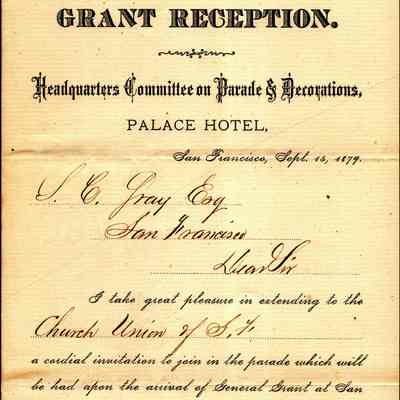 GRANT RECEPTION.
Headquarters Committee on Parade & Decorations,
PALACE HOTEL,
San Francisco, Sept. 15, 1879.
S. C. Gray Esq
San Francisco
Dear Sir
I take great pleasure in extending to the
Church Union of S. F.
a cordial invitation to join in the parade which will
be had upon the arrival of General Grant at San